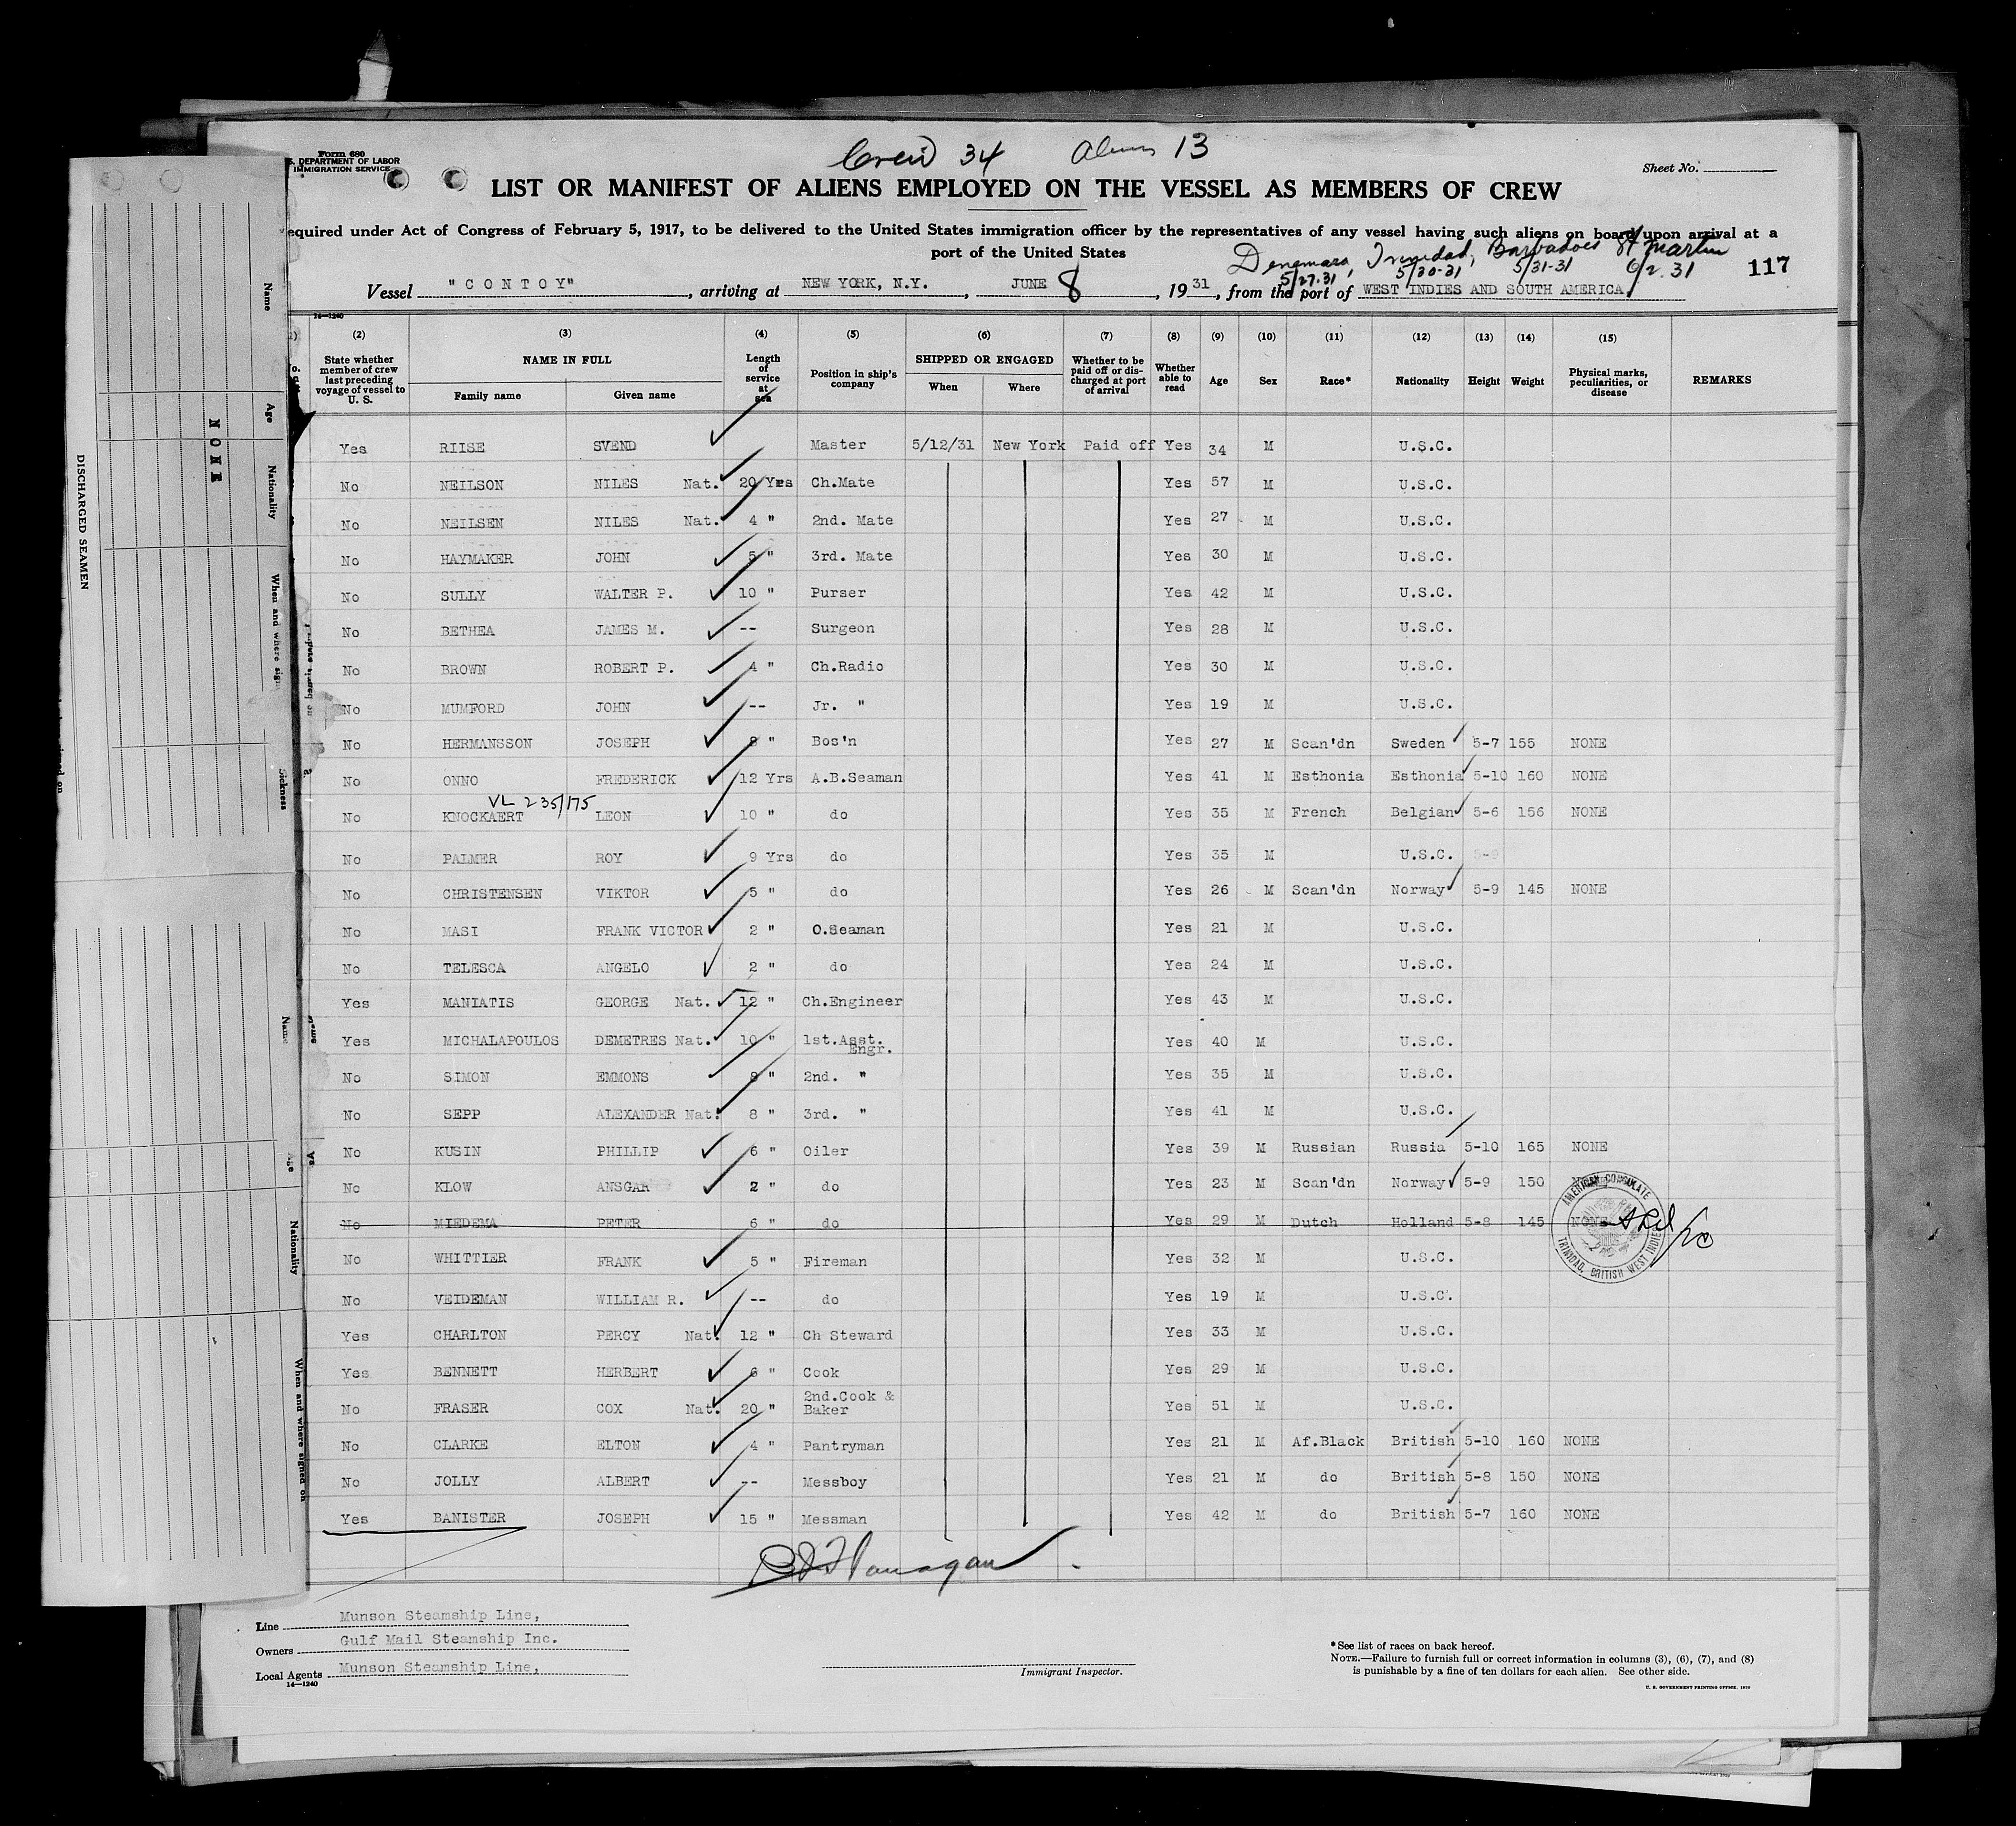 Crew 34 Aliens 13
Form 680
S. DEPARTMENT OF LABOR
IMMIGRATION SERVICE
Sheet No.
LIST OR MANIFEST OF ALIENS EMPLOYED ON THE VESSEL AS MEMBERS OF CREW
equired under Act of Congress of February 5, 1917, to be delivered to the United States immigration officer by the representatives of any vessel having such aliens on board upon arrival at a
port of the United States
Demerara, Trinidad, Barbadoes St Martin
5/27.31, 5/30-31 5/31-31 6/2.31 117
Vessel "CONTOY", arriving at NEW YORK, N.Y., JUNE 8, 1931, from the port of WEST INDIES AND SOUTH AMERICA
14—1240
(2) (3) (4) (5) (6) (7) (8) (9) (10) (11) (12) (13) (14) (15)
State whether member of crew last preceding voyage of vessel to U. S. NAME IN FULL Family name Given name Length of service at sea Position in ship's company SHIPPED OR ENGAGED When Where Whether to be paid off or discharged at port of arrival Whether able to read Age Sex Race* Nationality Height Weight Physical marks, peculiarities, or disease REMARKS
Yes RIISE SVEND Master 5/12/31 New York Paid off Yes 34 M U.S.C.
No NEILSON NILES Nat. 20 Yrs Ch.Mate Yes 57 M U.S.C.
No NEILSEN NILES Nat. 4 " 2nd. Mate Yes 27 M U.S.C.
No HAYMAKER JOHN 5 " 3rd. Mate Yes 30 M U.S.C.
No SULLY WALTER P. 10 " Purser Yes 42 M U.S.C.
No BETHEA JAMES M. -- Surgeon Yes 28 M U.S.C.
No BROWN ROBERT P. 4 " Ch.Radio Yes 30 M U.S.C.
No MUMFORD JOHN -- Jr. " Yes 19 M U.S.C.
No HERMANSSON JOSEPH 8 " Bos'n Yes 27 M Scan'dn Sweden 5-7 155 NONE
No ONNO FREDERICK 12 Yrs A.B.Seaman Yes 41 M Esthonia Esthonia 5-10 160 NONE
VL 235/175
No KNOCKAERT LEON 10 " do Yes 35 M French Belgian 5-6 156 NONE
No PALMER ROY 9 Yrs do Yes 35 M U.S.C. 5-9
No CHRISTENSEN VIKTOR 5 " do Yes 26 M Scan'dn Norway 5-9 145 NONE
No MASI FRANK VICTOR 2 " O.Seaman Yes 21 M U.S.C.
No TELESCA ANGELO 2 " do Yes 24 M U.S.C.
Yes MANIATIS GEORGE Nat. 12 " Ch.Engineer Yes 43 M U.S.C.
Yes MICHALAPOULOS DEMETRES Nat. 10 " 1st.Asst. Engr. Yes 40 M U.S.C.
No SIMON EMMONS 8 " 2nd. " Yes 35 M U.S.C.
No SEPP ALEXANDER Nat. 8 " 3rd. " Yes 41 M U.S.C.
No KUSIN PHILLIP 6 " Oiler Yes 39 M Russian Russia 5-10 165 NONE
No KLOW ANSGAR 2 " do Yes 23 M Scan'dn Norway 5-9 150 NONE
No MIEDEMA PETER 6 " do Yes 29 M Dutch Holland 5-8 145 NONE
AMERICAN CONSULATE
TRINIDAD, BRITISH WEST INDIES
No WHITTIER FRANK 5 " Fireman Yes 32 M U.S.C.
No VEIDEMAN WILLIAM R. -- do Yes 19 M U.S.C.
Yes CHARLTON PERCY Nat. 12 " Ch Steward Yes 33 M U.S.C.
Yes BENNETT HERBERT 6 " Cook Yes 29 M U.S.C.
No FRASER COX Nat. 20 " 2nd.Cook & Baker Yes 51 M U.S.C.
No CLARKE ELTON 4 " Pantryman Yes 21 M Af.Black British 5-10 160 NONE
No JOLLY ALBERT -- Messboy Yes 21 M do British 5-8 150 NONE
Yes BANISTER JOSEPH 15 " Messman Yes 42 M do British 5-7 160 NONE
Flanagan
Line Munson Steamship Line,
Owners Gulf Mail Steamship Inc.
Local Agents Munson Steamship Line,
14—1240
Immigrant Inspector.
*See list of races on back hereof.
NOTE.—Failure to furnish full or correct information in columns (3), (6), (7), and (8)
is punishable by a fine of ten dollars for each alien. See other side.
U. S. GOVERNMENT PRINTING OFFICE. 1929
DISCHARGED SEAMEN
NONE
Name
Age
Nationality
When and where sign
Sickness
Name
Age
Nationality
When and where signed on